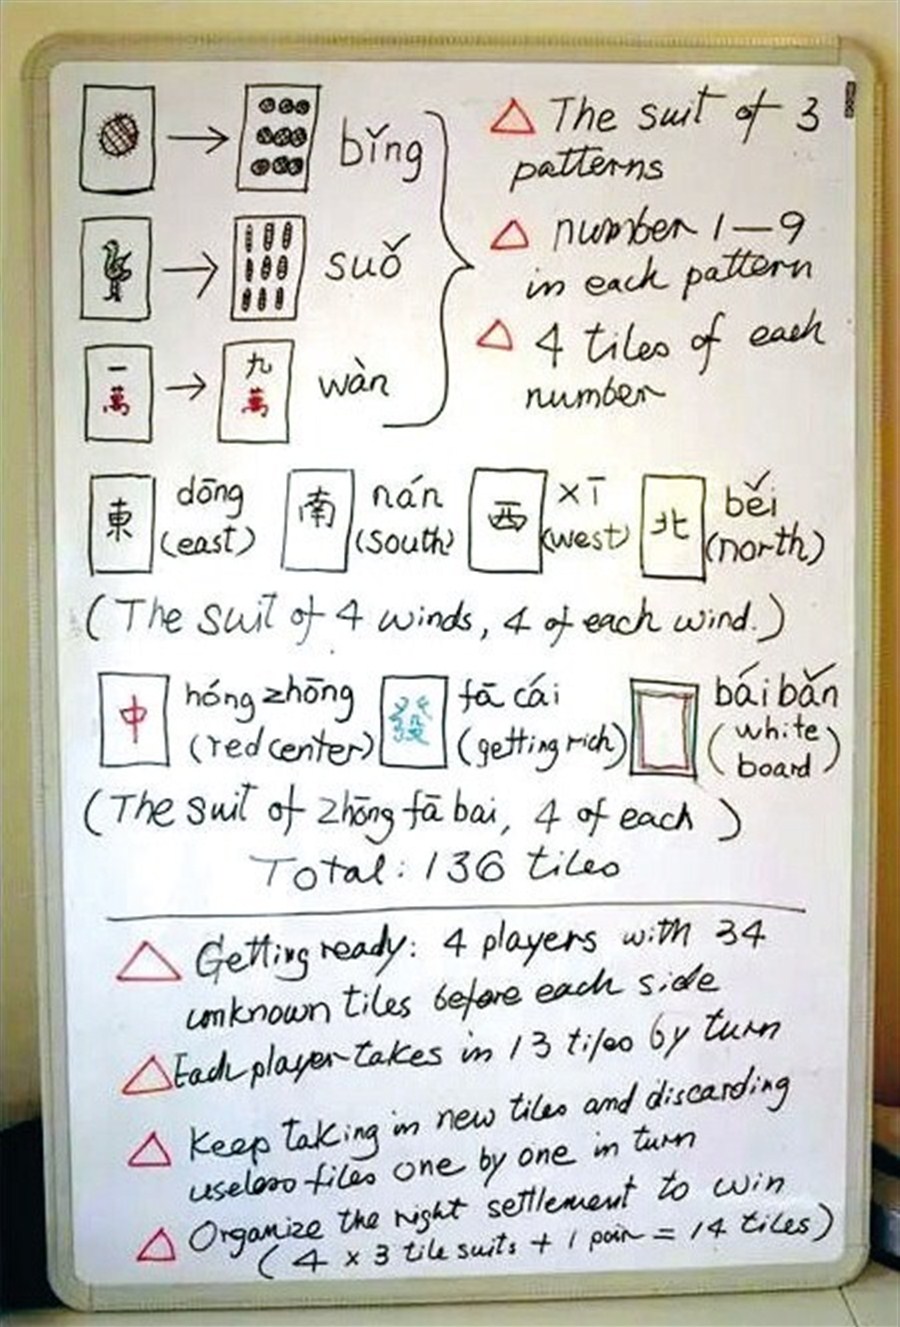 bǐng
suǒ
一萬
九萬
wàn
The suit of 3
patterns
number 1—9
in each pattern
4 tiles of each
number
東 dōng
(east)
南 nán
(south)
西 xī
(west)
北 běi
(north)
(The suit of 4 winds, 4 of each wind.)
中 hóng zhōng
(red center)
發 fā cái
(getting rich)
bái bǎn
(white
board)
(The suit of zhōng fā bai, 4 of each)
Total: 136 tiles
Getting ready: 4 players with 34
unknown tiles before each side
Each player takes in 13 tiles by turn
Keep taking in new tiles and discarding
useless tiles one by one in turn
Organize the right settlement to win
(4 x 3 tile suits + 1 pair = 14 tiles)